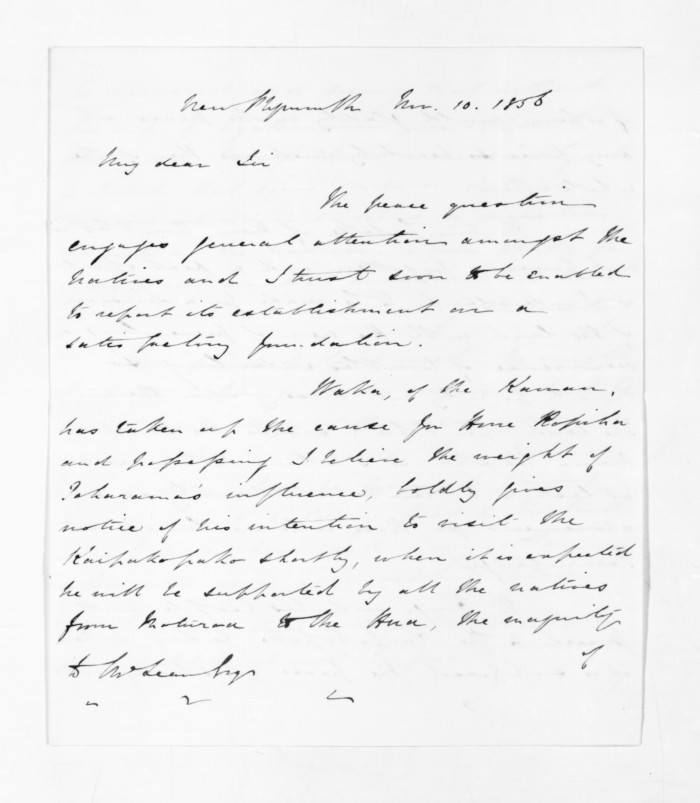 New Plymouth Nov. 10. 1856
My dear Sir
The peace question
engages general attention amongst the
Natives and I trust soon to be enabled
to report its establishment on a
satisfactory foundation.
Waka, of the
has taken up the cause for Hone Ropiha
and possessing I believe the weight of
Taharama's influence, boldly gives
notice of his intention to visit the
Kaipakopako shortly, when it is expected
he will be supported by all the natives
from to the Hua, the majority
of
D McLean Esqr